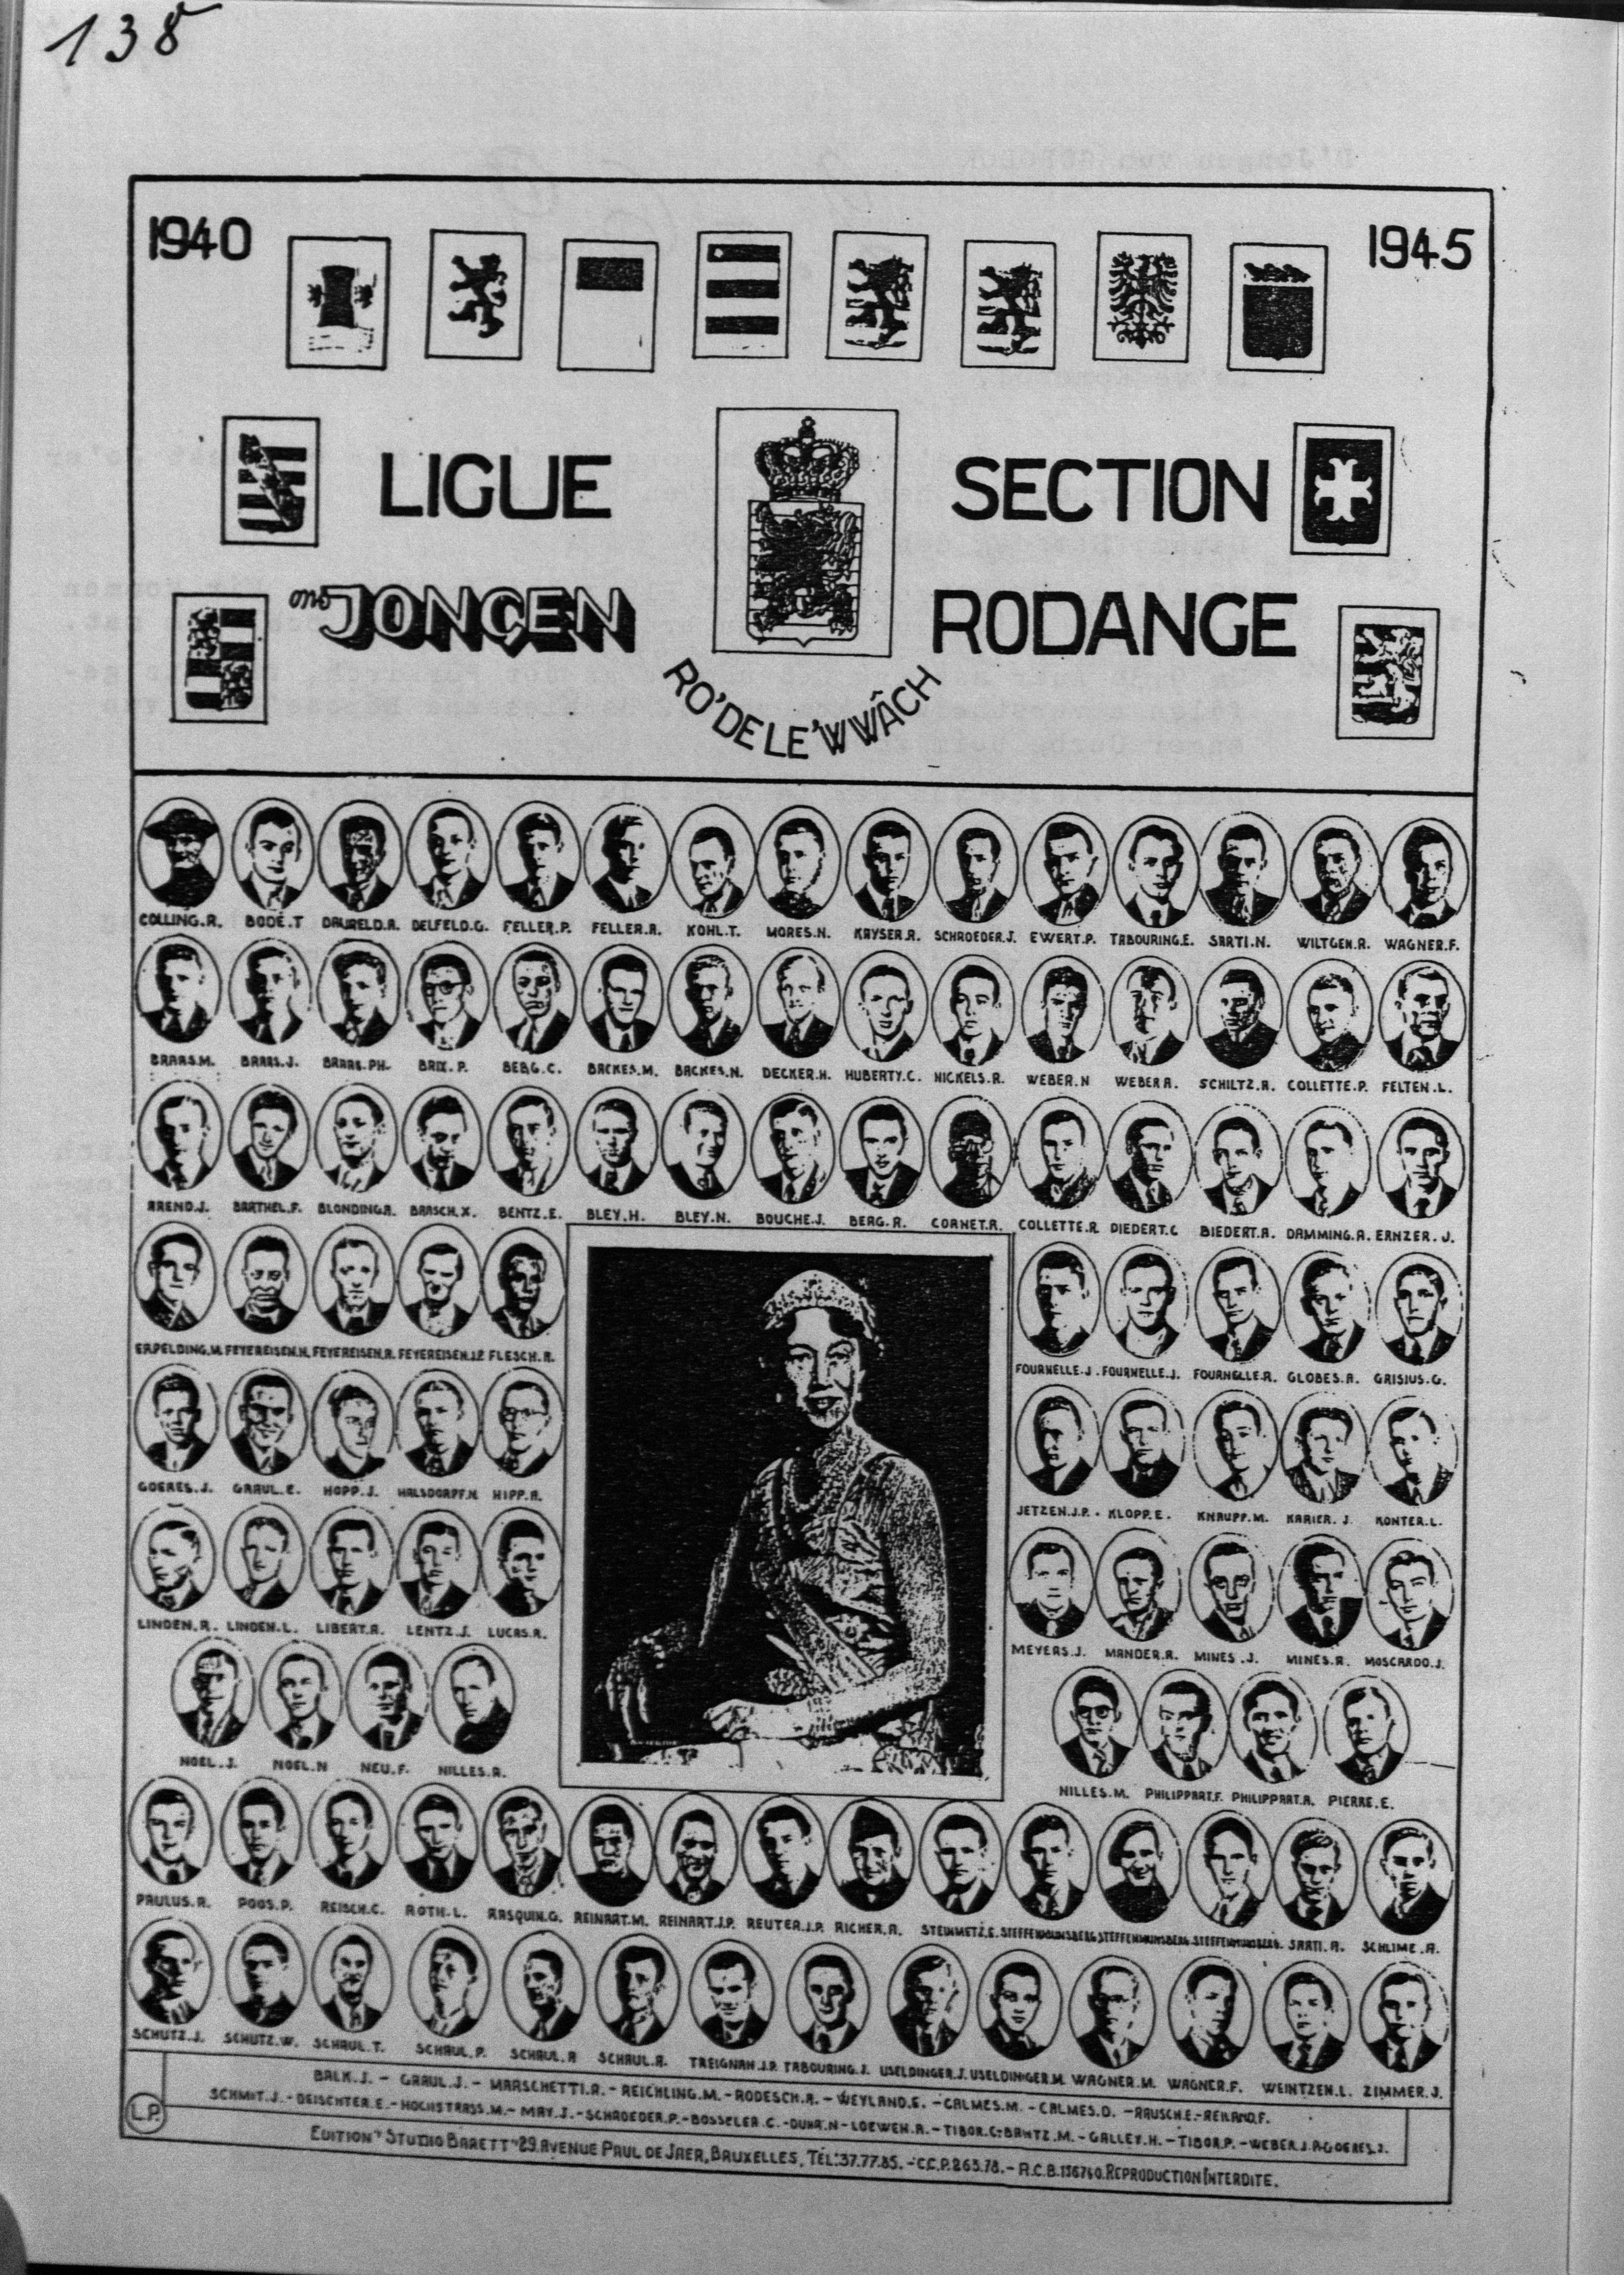 138
1940 1945
LIGUE SECTION
ONS JONGEN RODANGE
RO'DE LE'W WÂCH
COLLING.R. BODÉ.T DAURELD.A. DELFELD.G. FELLER.P. FELLER.A. KOHL.T. MORES.N. KAYSER.A. SCHROEDER.J. EWERT.P. TABOURING.E. SARTI.N. WILTGEN.A. WAGNER.F.
BRAAS.M. BRAAS.J. BRAAS.PH. BRIX.P. BERG.C. BACKES.M. BACKES.N. DECKER.H. HUBERTY.C. NICKELS.R. WEBER.N WEBER A. SCHILTZ.A. COLLETTE.P. FELTEN.L.
AREND.J. BARTHEL.F. BLONDING.A. BRASCH.X. BENTZ.E. BLEY.H. BLEY.N. BOUCHE.J. BERG.R. CORNET.R. COLLETTE.R DIEDERT.C BIEDERT.A. DAMMING.A. ERNZER.J.
ERPELDING.M. FEYEREISEN.H. FEYEREISEN.R. FEYEREISEN.J.P. FLESCH.A. FOURNELLE.J. FOURNELLE.J. FOURNELLE.R. GLOBES.A. GRISIUS.G.
GOERES.J. GRAUL.E. HOPP.J. HALSDORPF.N HIPP.A. JETZEN.J.P. KLOPP.E. KNAUPF.M. KARIER.J. KONTER.L.
LINDEN.R. LINDEN.L. LIBERT.A. LENTZ.J. LUCAS.R. MEYERS.J. MANDER.R. MINES.J. MINES.R. MOSCARDO.J.
NOEL.J. NOEL.N NEU.F. NILLES.R. NILLES.M. PHILIPPART.F. PHILIPPART.A. PIERRE.E.
PAULUS.R. POOS.P. REISCH.C. ROTH.L. RASQUIN.G. REINART.M. REINART.J.P. REUTER.J.P. RICHER.A. STEINMETZ.E. STEFFENMUNSBERG STEFFENMUNSBERG STEFFENMUNSBERG. SARTI.A. SCHLIME.A.
SCHUTZ.J. SCHUTZ.W. SCHAUL.T. SCHAUL.P. SCHAUL.A SCHAUL.A. TREIGNAN.J.P. TABOURING.J. USELDINGER.J. USELDINGER.M. WAGNER.M. WAGNER.F. WEINTZEN.L. ZIMMER.J.
BALK.J. - GRAUL.J. - MARSCHETTI.A. - REICHLING.M. - RODESCH.A. - WEYLAND.E. - CALMES.M. - CALMES.D. - RAUSCH.E. - REILAND.F.
SCHMIT.J. - DEISCHTER.E. - HOCHSTRASS.M. - MAY.J. - SCHROEDER.P. - BOSSELER.C. - DUHR.N - LOEWEN.A. - TIBOR.C. - BANTZ.M. - GALLEY.H. - TIBOR.P. - WEBER.J.P. GOERES.J.
L.P.
EDITION "STUDIO BARETT" 29.AVENUE PAUL DE JAER, BRUXELLES, TEL: 37.77.85. - C.C.P. 263.78. - R.C.B. 136760. REPRODUCTION INTERDITE.